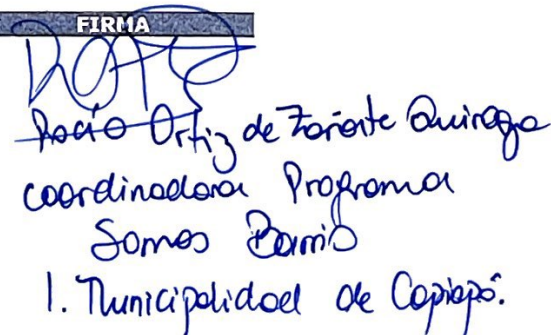 FIRMA
Rocío Ortiz de Zárate Quiroga
coordinadora Programa
Somos Barrio
I. Municipalidad de Copiapó.